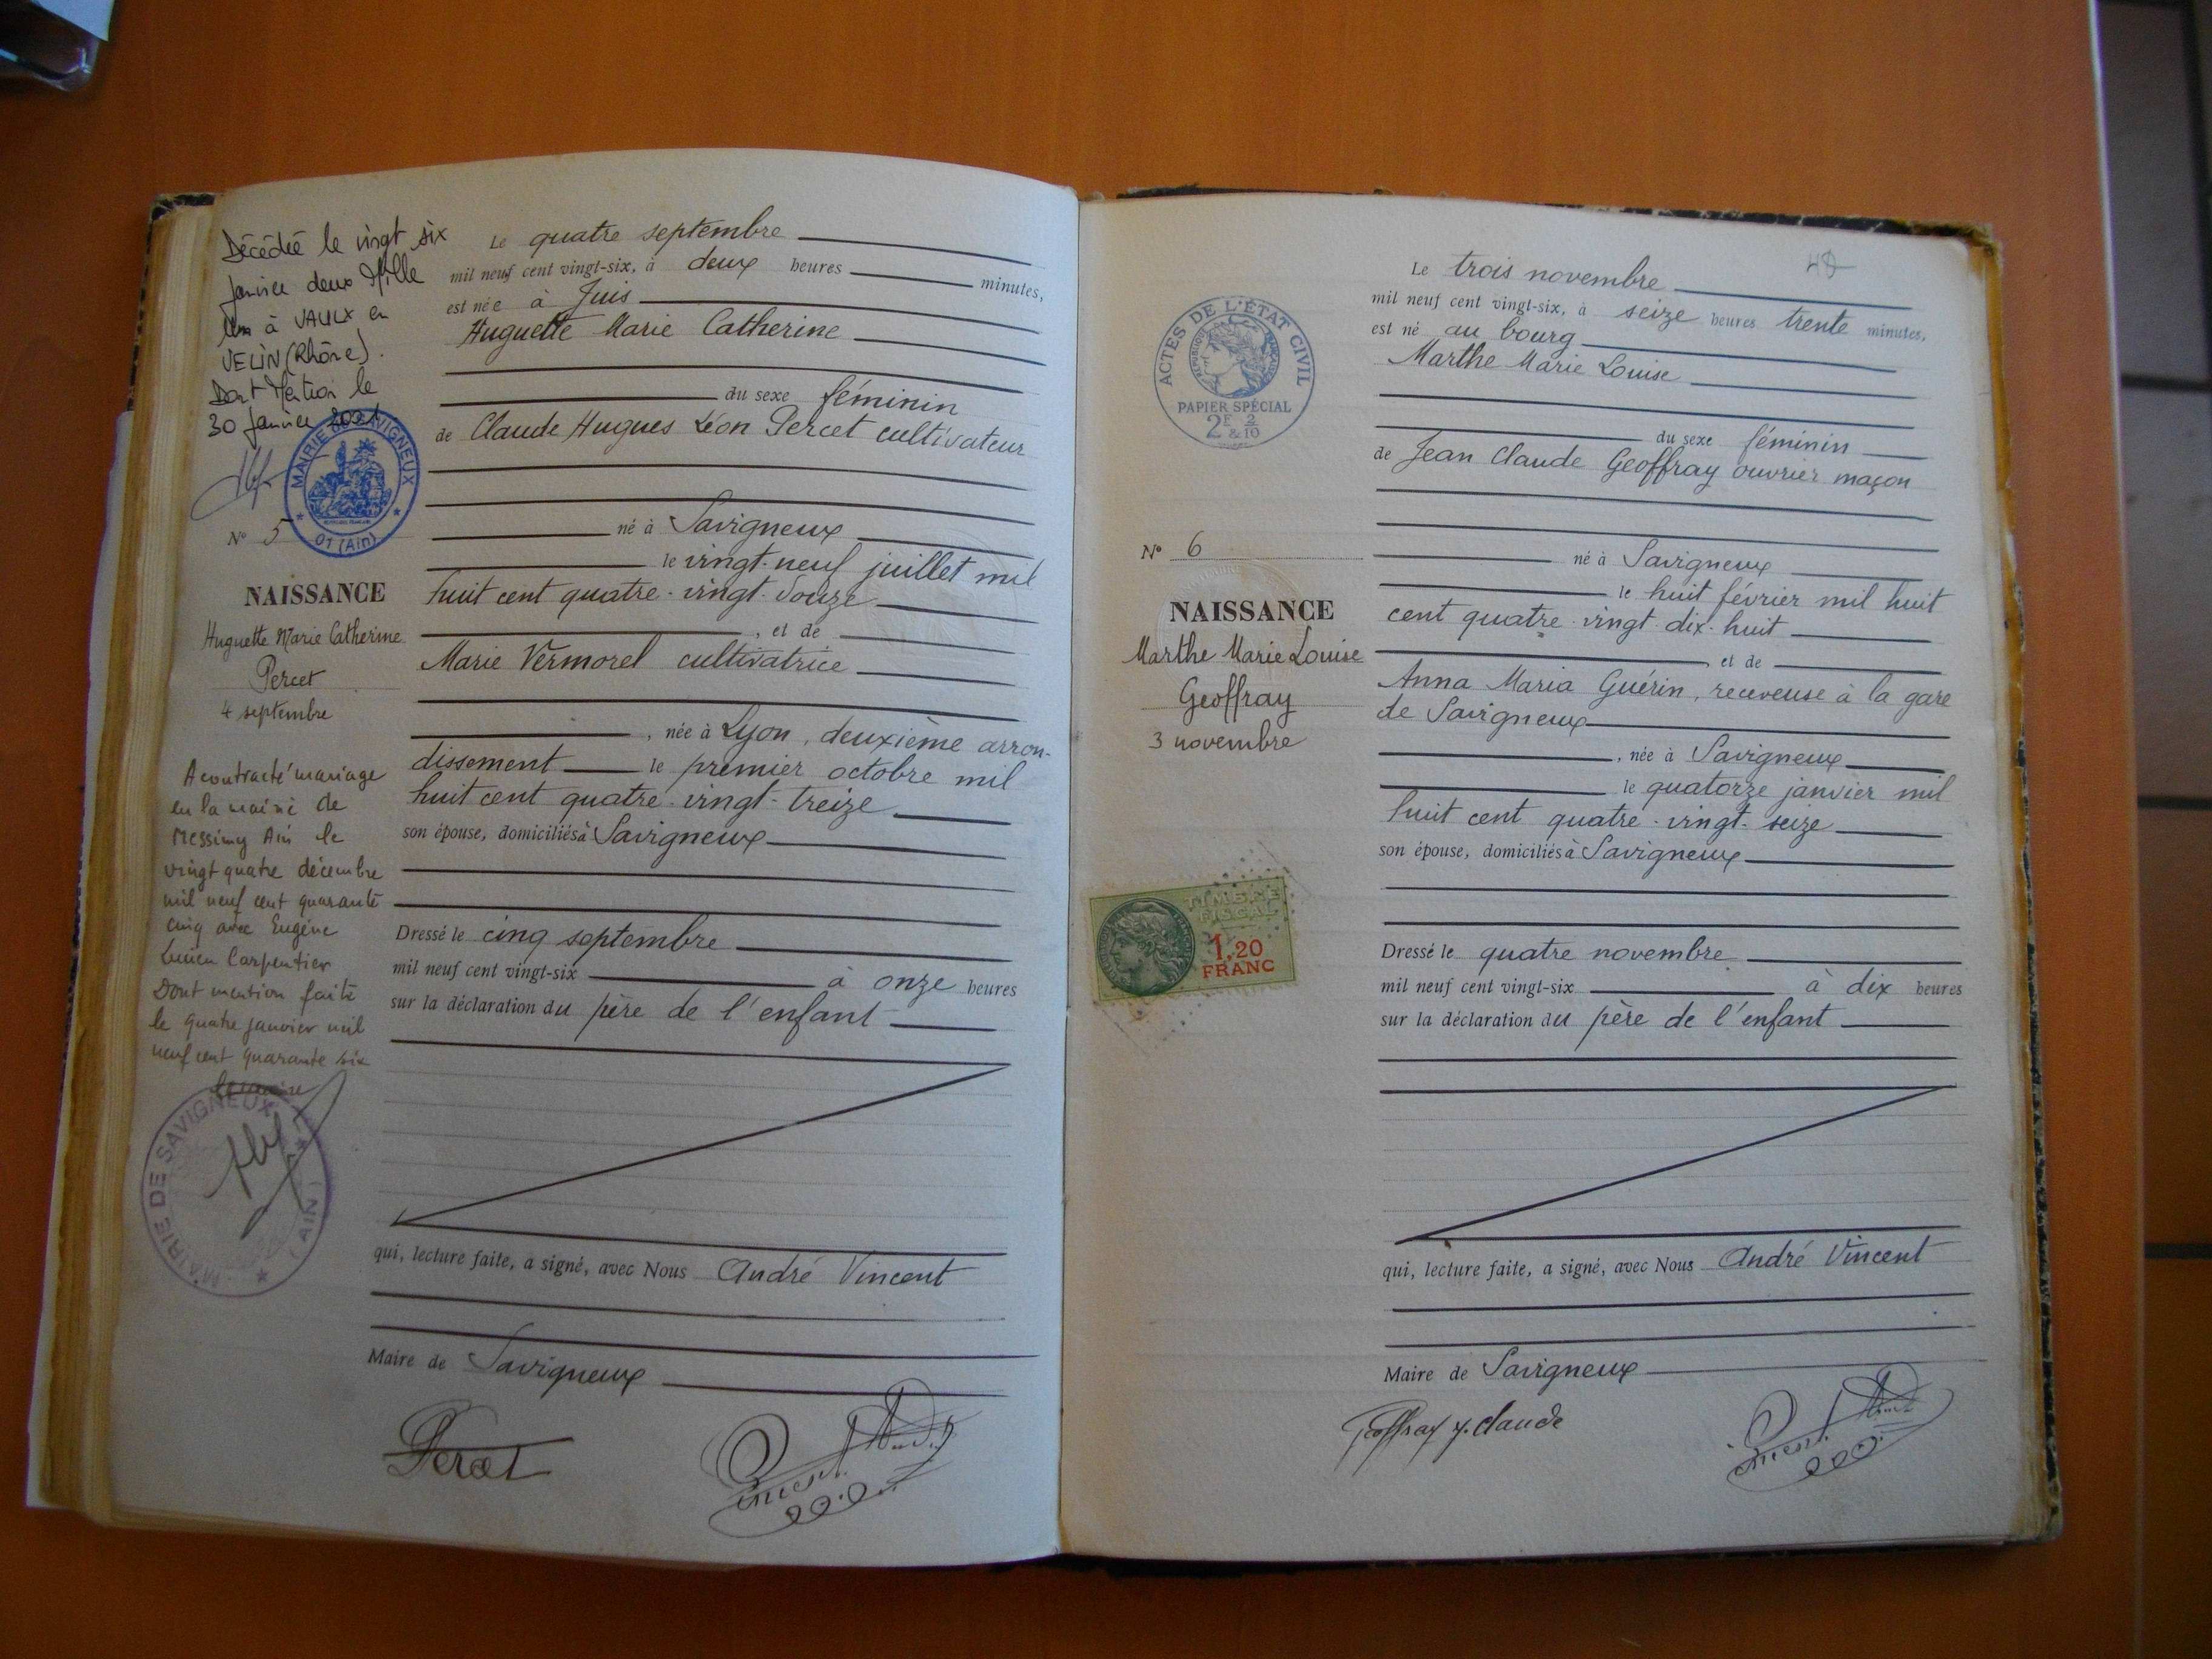 Décédée le vingt six
janvier deux Mille
un à VAULX en
VELIN (Rhône).
Dont Mention le
30 janvier 2001
MAIRIE de SAVIGNEUX
01 (Ain)
N° 5
NAISSANCE
Huguette Marie Catherine
Percet
4 septembre
A contracté mariage
en la mairie de
Messimy Ain le
vingt quatre décembre
mil neuf cent quarante
cinq avec Eugène
Lucien Carpentier
Dont mention faite
le quatre janvier mil
neuf cent quarante six
MAIRIE DE SAVIGNEUX
(AIN)
Le quatre septembre
mil neuf cent vingt-six, à deux heures minutes,
est née à Juis
Huguette Marie Catherine
du sexe féminin
de Claude Hugues Léon Percet cultivateur
né à Savigneux
le vingt-neuf juillet mil
huit cent quatre-vingt-douze
, et de
Marie Vermorel cultivatrice
, née à Lyon, deuxième arron-
dissement le premier octobre mil
huit cent quatre-vingt-treize
son épouse, domiciliés à Savigneux
Dressé le cinq septembre
mil neuf cent vingt-six à onze heures
sur la déclaration du père de l'enfant
qui, lecture faite, a signé, avec Nous André Vincent
Maire de Savigneux
Percet
ACTES DE L'ÉTAT CIVIL
RÉPUBLIQUE FRANÇAISE
PAPIER SPÉCIAL
2E 2 & 10
N° 6
NAISSANCE
Marthe Marie Louise
Geoffray
3 novembre
TIMBRE
FISCAL
1,20
FRANC
Le trois novembre
mil neuf cent vingt-six, à seize heures trente minutes,
est né au bourg
Marthe Marie Louise
du sexe féminin
de Jean Claude Geoffray ouvrier maçon
né à Savigneux
le huit février mil huit
cent quatre-vingt-dix-huit
, et de
Anna Maria Guérin, receveuse à la gare
de Savigneux
, née à Savigneux
le quatorze janvier mil
huit cent quatre-vingt-seize
son épouse, domiciliés à Savigneux
Dressé le quatre novembre
mil neuf cent vingt-six à dix heures
sur la déclaration du père de l'enfant
qui, lecture faite, a signé, avec Nous André Vincent
Maire de Savigneux
Geoffray J. Claude